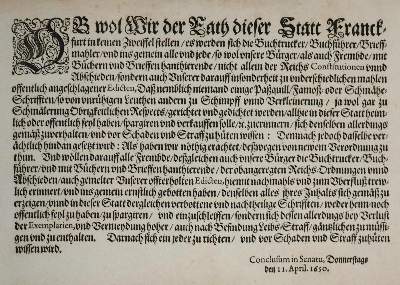 OB wol Wir der Rath dieser Statt Franck-
furt in keinen Zweiffel stellen / es werden sich die Buchtrucker / Buchführer / Brieff-
mahler / und ins gemein alle und jede / so wol unsere Bürger / als auch Frembde / mit
Büchern und Brieffen hanthierende / nicht allein der Reichs Constitutionen unnd
Abschieden / sondern auch Unserer darauff insonderheit zu underschiedlichen mahlen
offentlich angeschlagener Edicten, Daß nemblich niemand einige Paßquill / Famoß- oder Schmähe-
Schrifften / so von unrühigen Leuthen andern zu Schimpff unnd Verkleinerung / ja wol gar zu
Schmälerung Obrigkeitlichen Respects / gerichtet und gedichtet werden / allhie in dieser Statt heim-
lich oder offentlich feyl haben / spargiren und vertauffen solle / zu erinnern / sich denselben allerdings
gemäß zuverhalten / und vor Schaden und Straff zuhüten wissen: Demnach jedoch dasselbe ver-
ächtlich hindan gesetzt wird: Als haben wir nöthig erachtet / deßwegen von newem Verordnung zu
thun. Und wöllen darauff alle Frembde / deßgleichen auch unsere Bürger die Buchtrucker / Buch-
führer / und mit Büchern und Brieffen hanthierende / der obangeregten Reichs-Ordnungen unnd
Abschieden / auch gemelter Unserer offterholten Edicten, hiemit nachmals und zum Uberfluß trew-
lich erinnert / und ins gemein ernstlich gebotten haben / denselben alles ihres Inhalts sich gemäß zu
erzeigen / unnd in dieser Statt dergleichen verbottene und nachtheilige Schrifften / weder heim- noch
offentlich feyl zu haben / zu spargiren / und einzuschleiffen / sondern sich dessen allerdings bey Verlust
der Exemplarien, und Vermeydung hoher / auch nach Befindung Leibs-Straff / gäntzlichen zu müssi-
gen und zu enthalten. Darnach sich ein jeder zu richten / und vor Schaden und Straff zuhüten
wissen wird.
Conclusum in Senatu, Donnerstags
den 11. April. 1650.